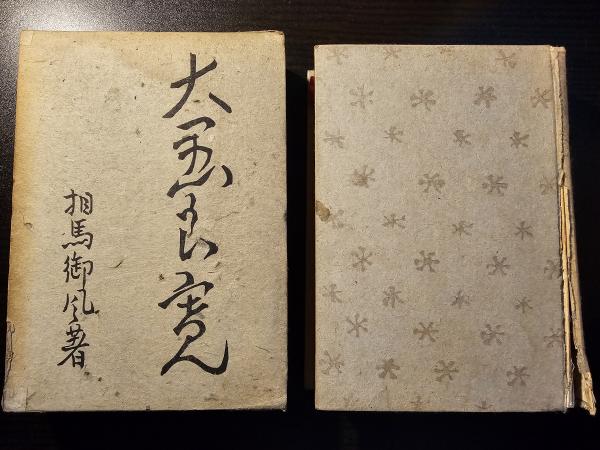 大愚良寛
相馬御風著